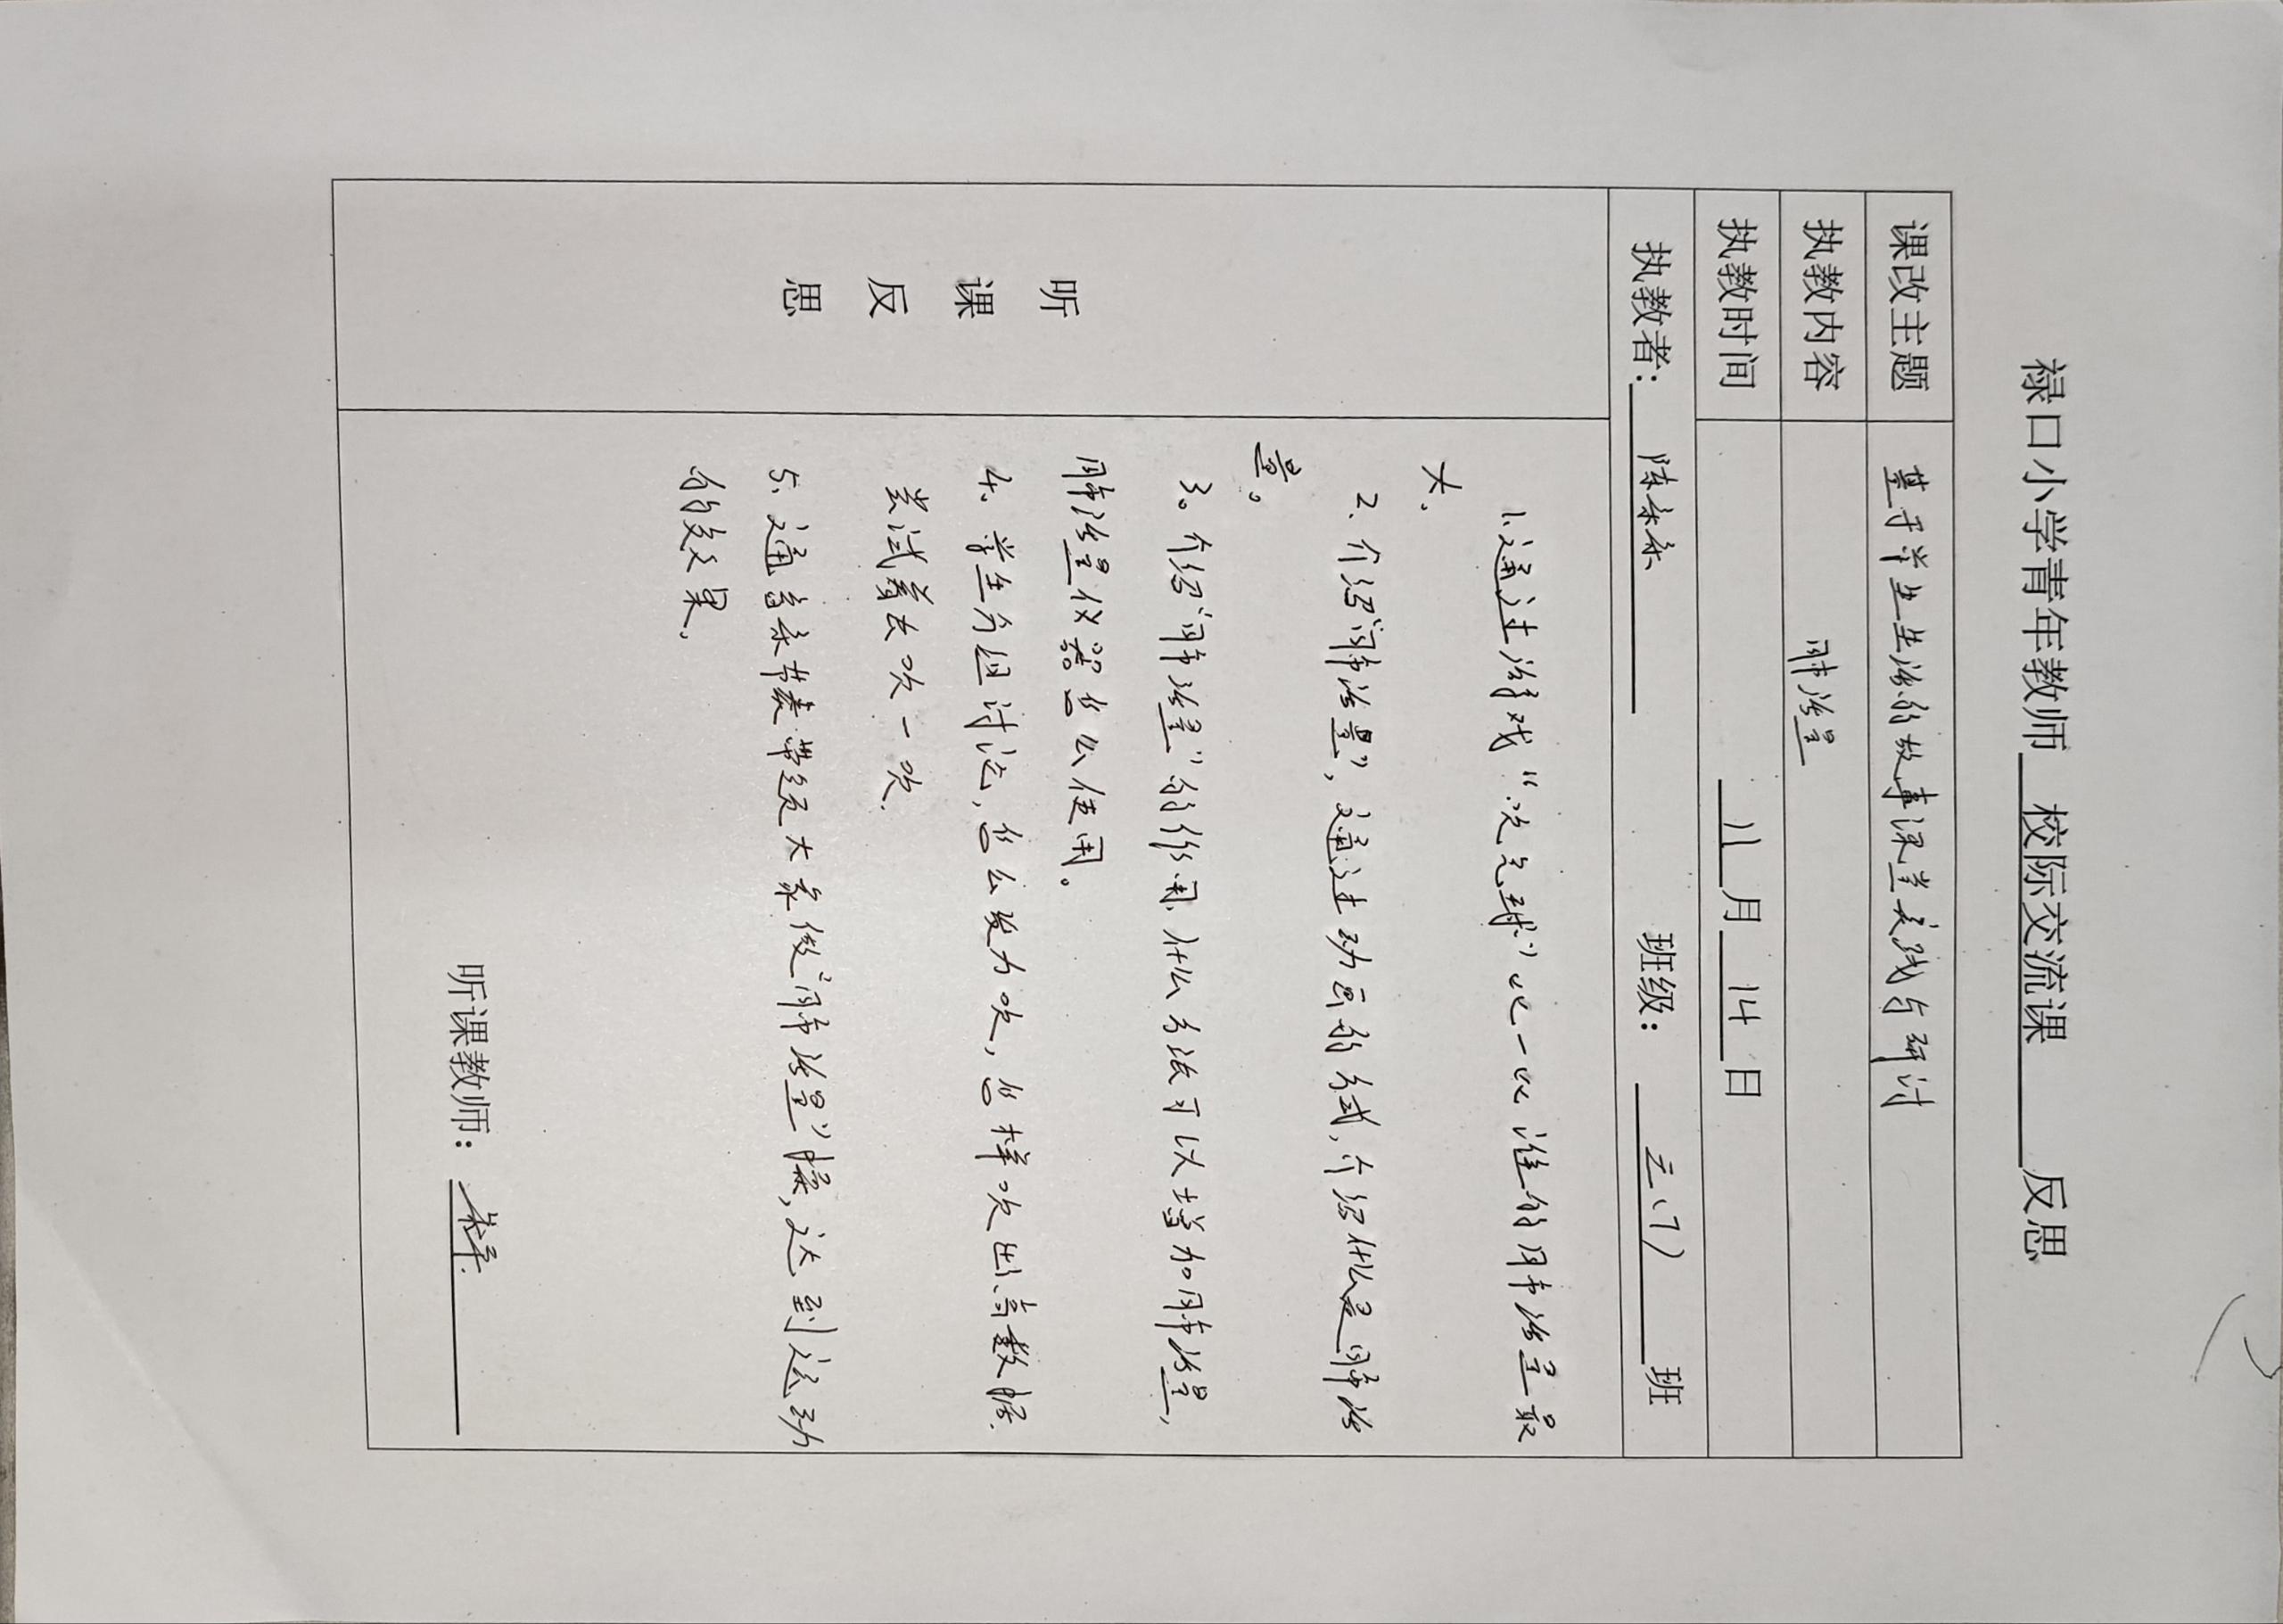 禄口小学青年教师 校际交流课 反思
课改主题 基于学生生活的故事课堂实践与研讨
执教内容 肺活量
执教时间 11月14日
执教者: 陈乐乐 班级: 三(7)班
听课反思
1.通过游戏“吹气球”比一比谁的肺活量最
大。
2.介绍“肺活量”,通过动画的方式,介绍什么是肺活
量。
3。介绍“肺活量”的作用、什么方法可以增加肺活量,
肺活量仪器怎么使用。
4、学生分组讨论,怎么发力吹,怎样吹出高数据.
尝试着去吹一吹.
5、通音乐节奏带领大家做“肺活量”操,达到运动
的效果。
听课教师: 朱平.